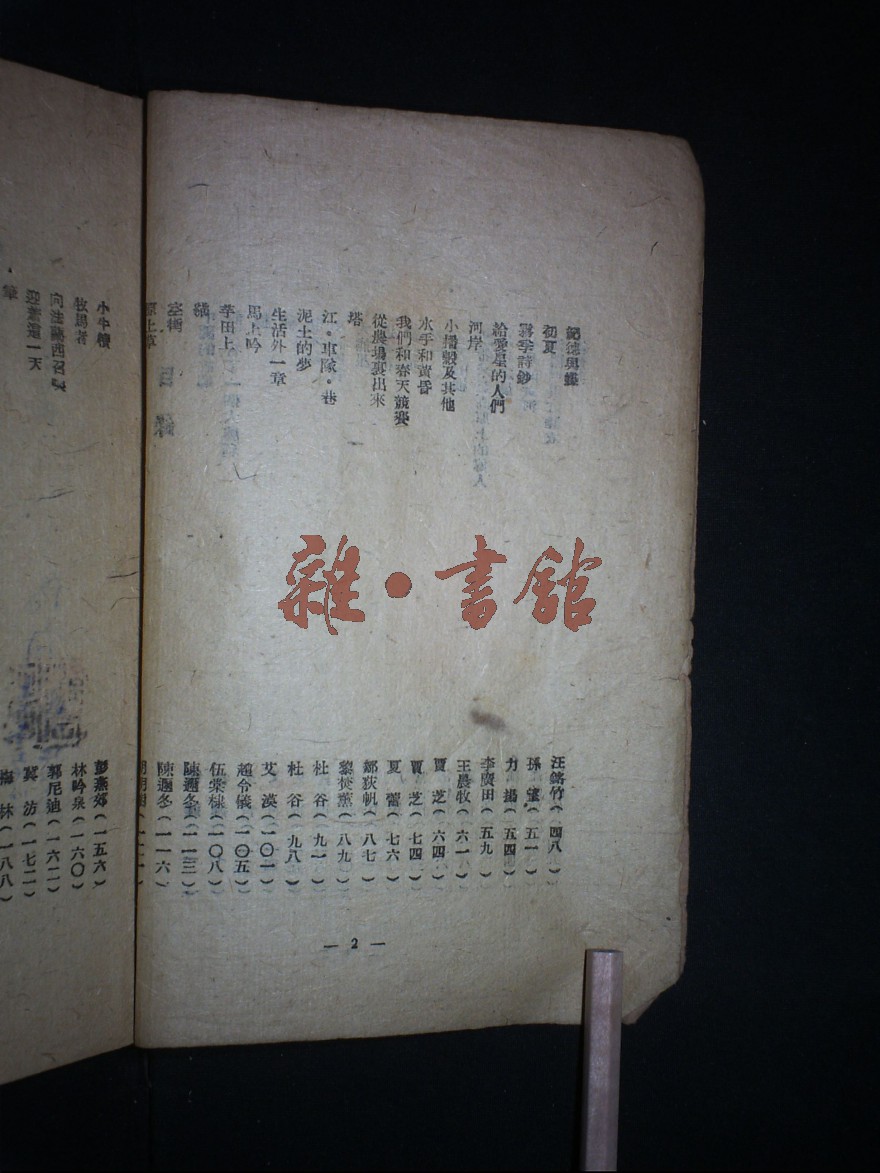 紀德與蝶 汪銘竹(四八)
初夏 孫望(五一)
霧季詩鈔 力揚(五四)
給愛星的人們 李廣田(五九)
河岸 王晨牧(六一)
小播穀及其他 賈芝(六四)
水手和黃昏 賈芝(七四)
我們和春天競賽 夏蕾(七六)
從農場裏出來 鄒荻帆(八七)
塔 黎焚薰(八九)
江·車隊·巷 杜谷(九一)
泥土的夢 杜谷(九八)
生活外一章 艾漠(一〇一)
馬上吟 趙令儀(一〇五)
芋田上 伍棠棣(一〇八)
陳邇冬(一一三)
空街 陳邇冬(一一六)
原上草
— 2 —
小牛犢 彭燕郊(一五六)
牧馬者 林吟泉(一六〇)
郭尼迪(一六二)
迎着這一天 冀汸(一七二)
林(一八八)
雜·書館